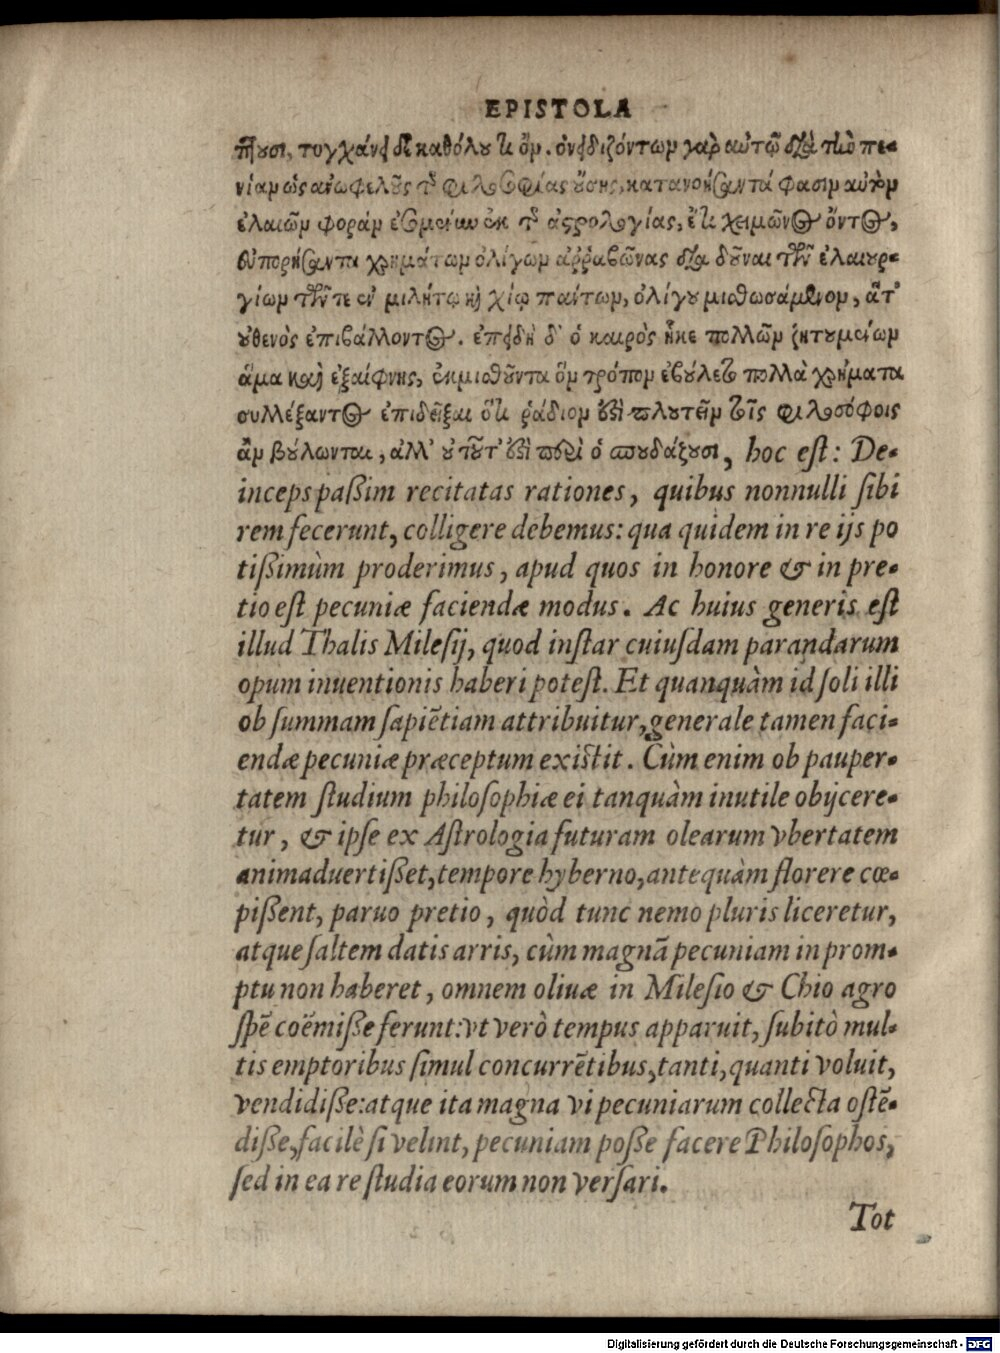 EPISTOLA
πτουσι, τυγχάνει δὲ καθόλου τι ὄν. ὀνειδιζόντων γὰρ αὐτῷ διὰ τὴν πε-
νίαν ὡς ἀνωφελοῦς τῆς φιλοσοφίας οὔσης, κατανοήσαντά φασιν αὐτὸν
ἐλαιῶν φορὰν ἐσομένην ἐκ τῆς ἀστρολογίας, ἔτι χειμῶνος ὄντος,
εὐπορήσαντα χρημάτων ὀλίγων ἀῤῥαβῶνας διαδοῦναι τῶν ἐλαιουρ-
γίων τῶν τε ἐν μιλήτῳ καὶ χίῳ πάντων, ὀλίγου μισθωσάμενον, ἅτ'
οὐθενὸς ἐπιβάλλοντος. ἐπειδὴ δ' ὁ καιρὸς ἧκε πολλῶν ζητουμένων
ἅμα καὶ ἐξαίφνης, ἐκμισθοῦντα ὃν τρόπον ἐβούλετο πολλὰ χρήματα
συλλέξαντος ἐπιδεῖξαι ὅτι ῥάδιον ἐστὶ πλουτεῖν τοῖς φιλοσόφοις
ἂν βούλωνται, ἀλλ' οὐ τοῦτ' ἐστὶ περὶ ὃ σπουδάζουσι, hoc est: De-
inceps paßim recitatas rationes, quibus nonnulli sibi
rem fecerunt, colligere debemus: qua quidem in re ijs po
tißimùm proderimus, apud quos in honore & in pre-
tio est pecuniæ faciendæ modus. Ac huius generis est
illud Thalis Milesij, quod instar cuiusdam parandarum
opum inuentionis haberi potest. Et quanquàm id soli illi
ob summam sapiẽtiam attribuitur, generale tamen faci-
endæ pecuniæ præceptum existit. Cùm enim ob pauper-
tatem studium philosophiæ ei tanquàm inutile obijcere-
tur, & ipse ex Astrologia futuram olearum vbertatem
animaduertißet, tempore hyberno, antequàm florere cœ-
pißent, paruo pretio, quòd tunc nemo pluris liceretur,
atque saltem datis arris, cùm magnã pecuniam in prom-
ptu non haberet, omnem oliuæ in Milesio & Chio agro
spẽ coëmiße ferunt: vt verò tempus apparuit, subitò mul-
tis emptoribus simul concurrẽtibus, tanti, quanti voluit,
vendidiße: atque ita magna vi pecuniarum collecta ostẽ-
diße, facilè si velint, pecuniam poße facere Philosophos,
sed in ea re studia eorum non versari.
Tot
Digitalisierung gefördert durch die Deutsche Forschungsgemeinschaft - DFG